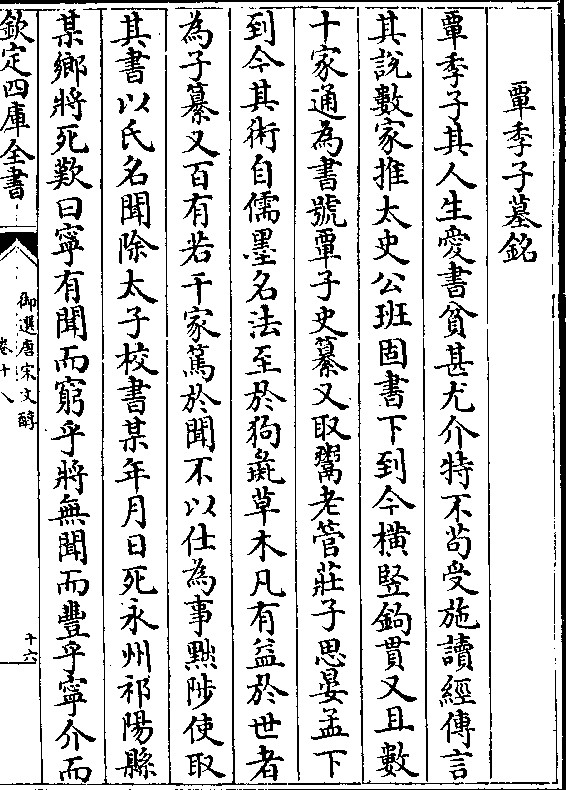 覃季子墓銘
覃季子其人生愛書貧甚尤介特不苟受施讀經傳言
其說數家推太史公班固書下到今橫竪鉤貫又且數
十家通為書號覃子史纂又取鬻老管莊子思晏孟下
到今其術自儒墨名法至於狗彘草木凡有益於世者
為子纂又百有若干家篤於聞不以仕為事黜陟使取
其書以氏名聞除太子校書某年月日死永州祁陽縣
某鄉將死歎曰寧有聞而窮乎將無聞而豐乎寧介而
欽定四庫全書
御選唐宋文醇
卷十八
十六